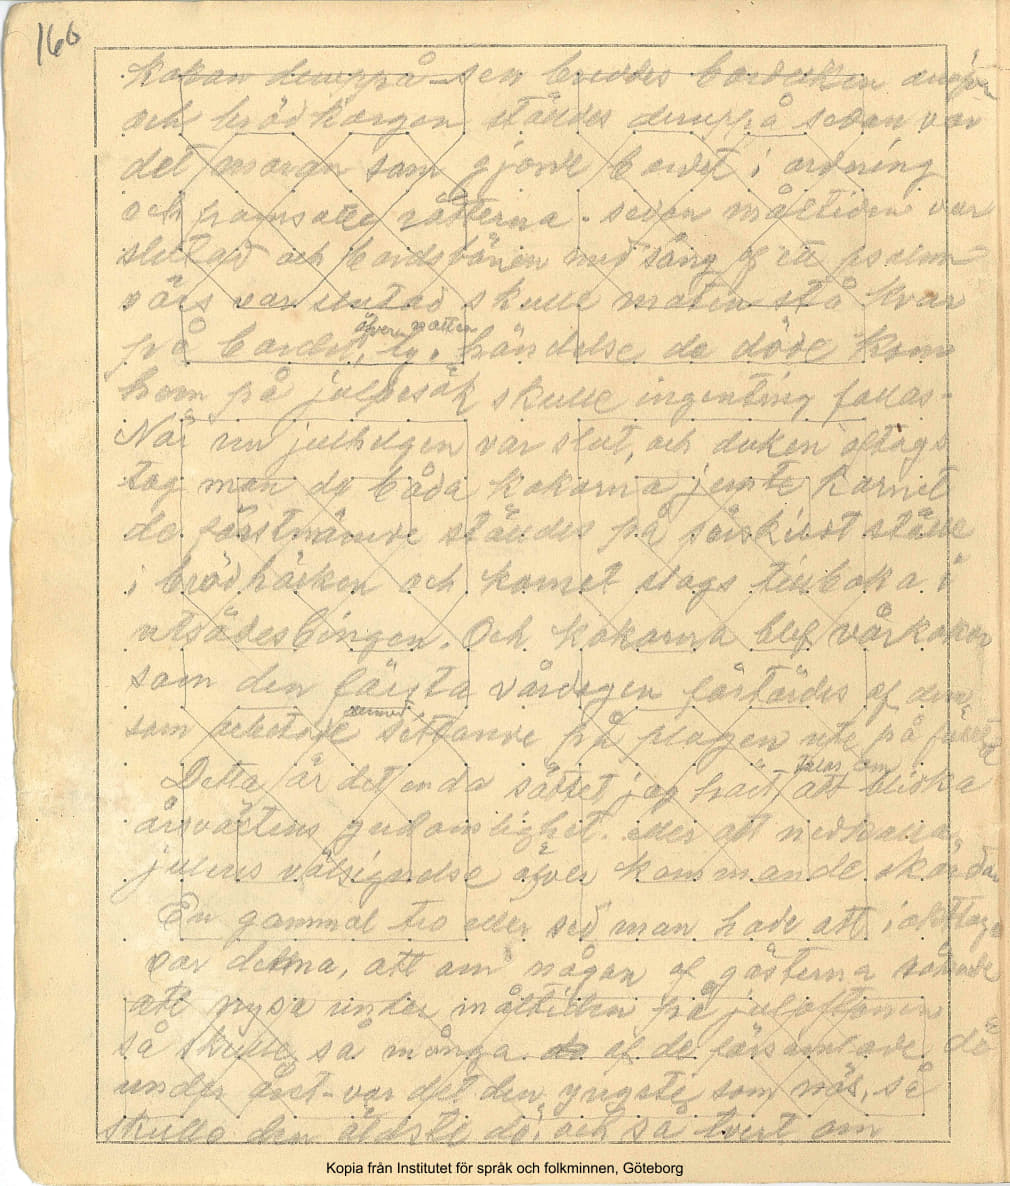 166
kakan deruppå – sen breddes bordduken
och brödkorgen ställdes deruppå sedan var
det moran som gjorde bordet i ordning
och framsatte rätterna. sedan måltiden var
slutad och bordsbönen med sång af ett psalm
värs var slutad skulle maten stå kvar
öfver natten
på bordet, ty. händelse de döde kom
hem på julbesök skulle ingenting fattas –
När nu julhelgen var slut, och duken aftags
tog man de båda kakorna jemte kornet
de förstnämde ställdes på särskilt ställe
i brödhäcken och kornet slogs tillbaka i
utsädesbingen. Och kakorna blef vårkakor
som den första vårdagen förtärdes af dem
som arbetade sittande på plogen ute på
talas om
Detta är det enda sättet jag hört att blidka
årsväxtens gudomlighet. eller att nedkalla
julens välsignelse öfver kommande skördar
En gammal tro eller sed man hade att iakttaga
var denna, att om någon af gästerna råkade
att nysa under måltiden på julaftonen
så skulle så många af de församlade dö
under året – var det den yngste som nös, så
skulle den äldste dö, och så tvert om
Kopia från Institutet för språk och folkminnen, Göteborg